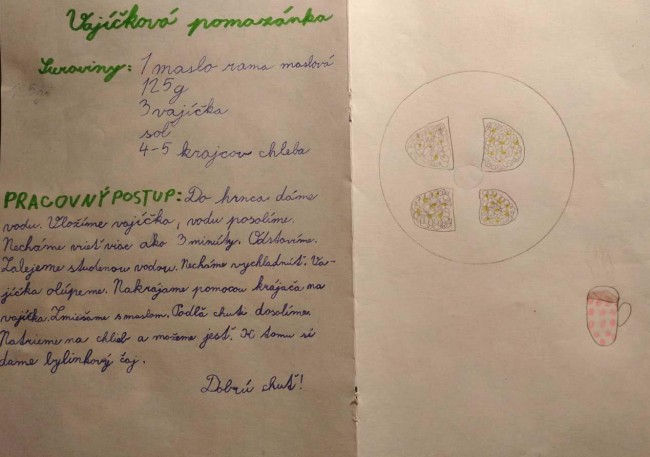 Vajíčková pomazánka
Suroviny: 1 maslo rama maslová
125g
3 vajíčka
soľ
4-5 krajcov chleba
PRACOVNÝ POSTUP: Do hrnca dáme
vodu. Vložíme vajíčka, vodu posolíme.
Necháme vrieť viac ako 3 minúty. Odstavíme.
Zalejeme studenou vodou. Necháme vychladnúť. Va-
jíčka olúpeme. Nakrájame pomocou krájača na
vajíčka. Zmiešame s maslom. Podľa chuti dosolíme.
Natrieme na chlieb a možeme jesť. K tomu si
dame bylinkový čaj.
Dobrú chuť!